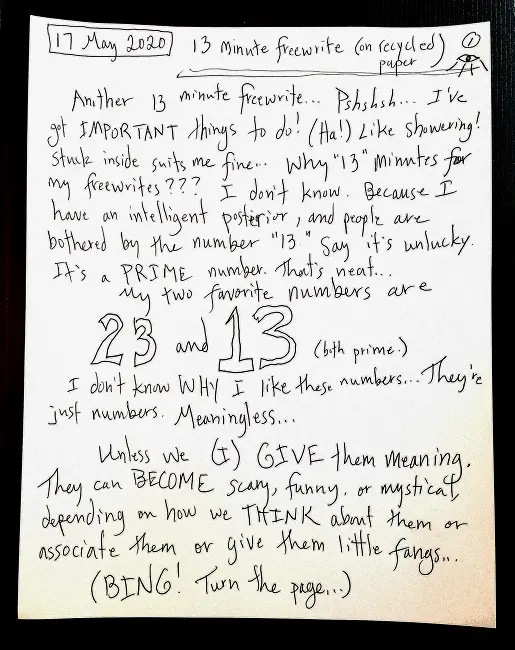 17 May 2020 13 minute freewrite (on recycled) 1
paper
Another 13 minute freewrite... Pshshsh... I've
got IMPORTANT things to do! (Ha!) Like showering!
Stuck inside suits me fine... Why "13" Minutes for
my freewrites??? I don't know. Because I
have an intelligent posterior, and people are
bothered by the number "13." Say it's unlucky.
It's a PRIME number. That's neat...
My two favorite numbers are
23 and 13 (both prime.)
I don't know WHY I like these numbers... They're
just numbers. Meaningless...
Unless we (I) GIVE them meaning.
They can BECOME scary, funny, or mystical,
depending on how we THINK about them or
associate them or give them little fangs...
(BING! Turn the page...)